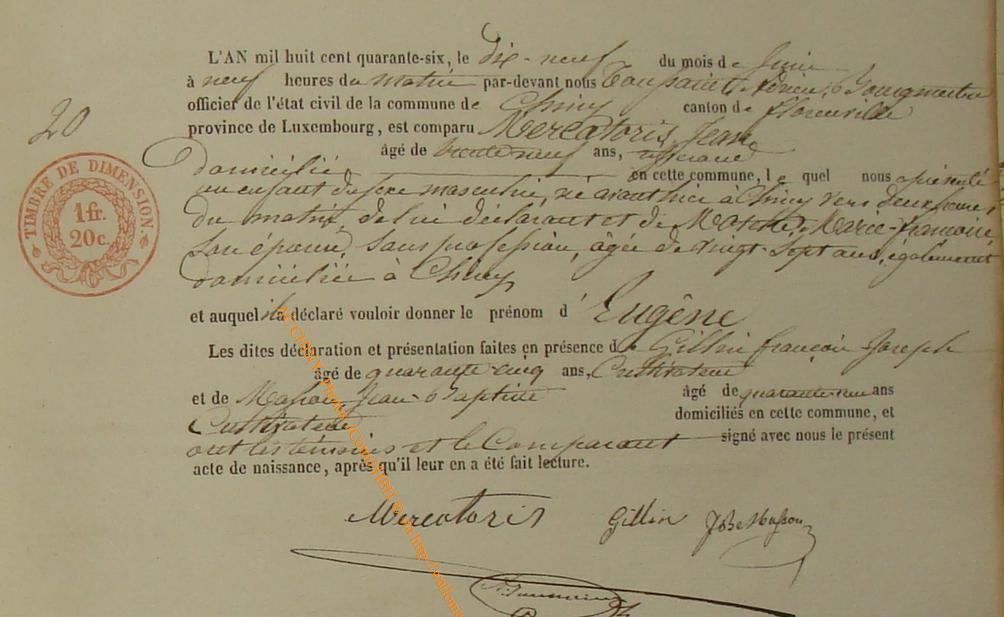 L'AN mil huit cent quarante-six, le dix-neuf du mois de Juin
à neuf heures du matin par-devant nous Toussaint, Bourgmestre
officier de l'état civil de la commune de Chiny canton de Florenville
province de Luxembourg, est comparu Mercatoris, Jean
20
âgé de trente neuf ans, tisserand
domicilié en cette commune, le quel nous a présenté
un enfant du sexe masculin, né avant hier à Chiny vers deux heures
du matin, de lui déclarant et de Marie-françoise
son épouse, sans profession, âgée de vingt-sept ans, également
domiciliée à Chiny
TIMBRE DE DIMENSION
1 fr.
20 c.
et auquel il a déclaré vouloir donner le prénom d'Eugêne
Les dites déclaration et présentation faites en présence de Gillin françois-Joseph
âgé de quarante cinq ans, Cultivateur
et de Masson, Jean-Baptiste âgé de ans
Cultivateur domiciliés en cette commune, et
ont les témoins et le Comparant signé avec nous le présent
acte de naissance, après qu'il leur en a été fait lecture.
Mercatoris Gillin JBe Masson